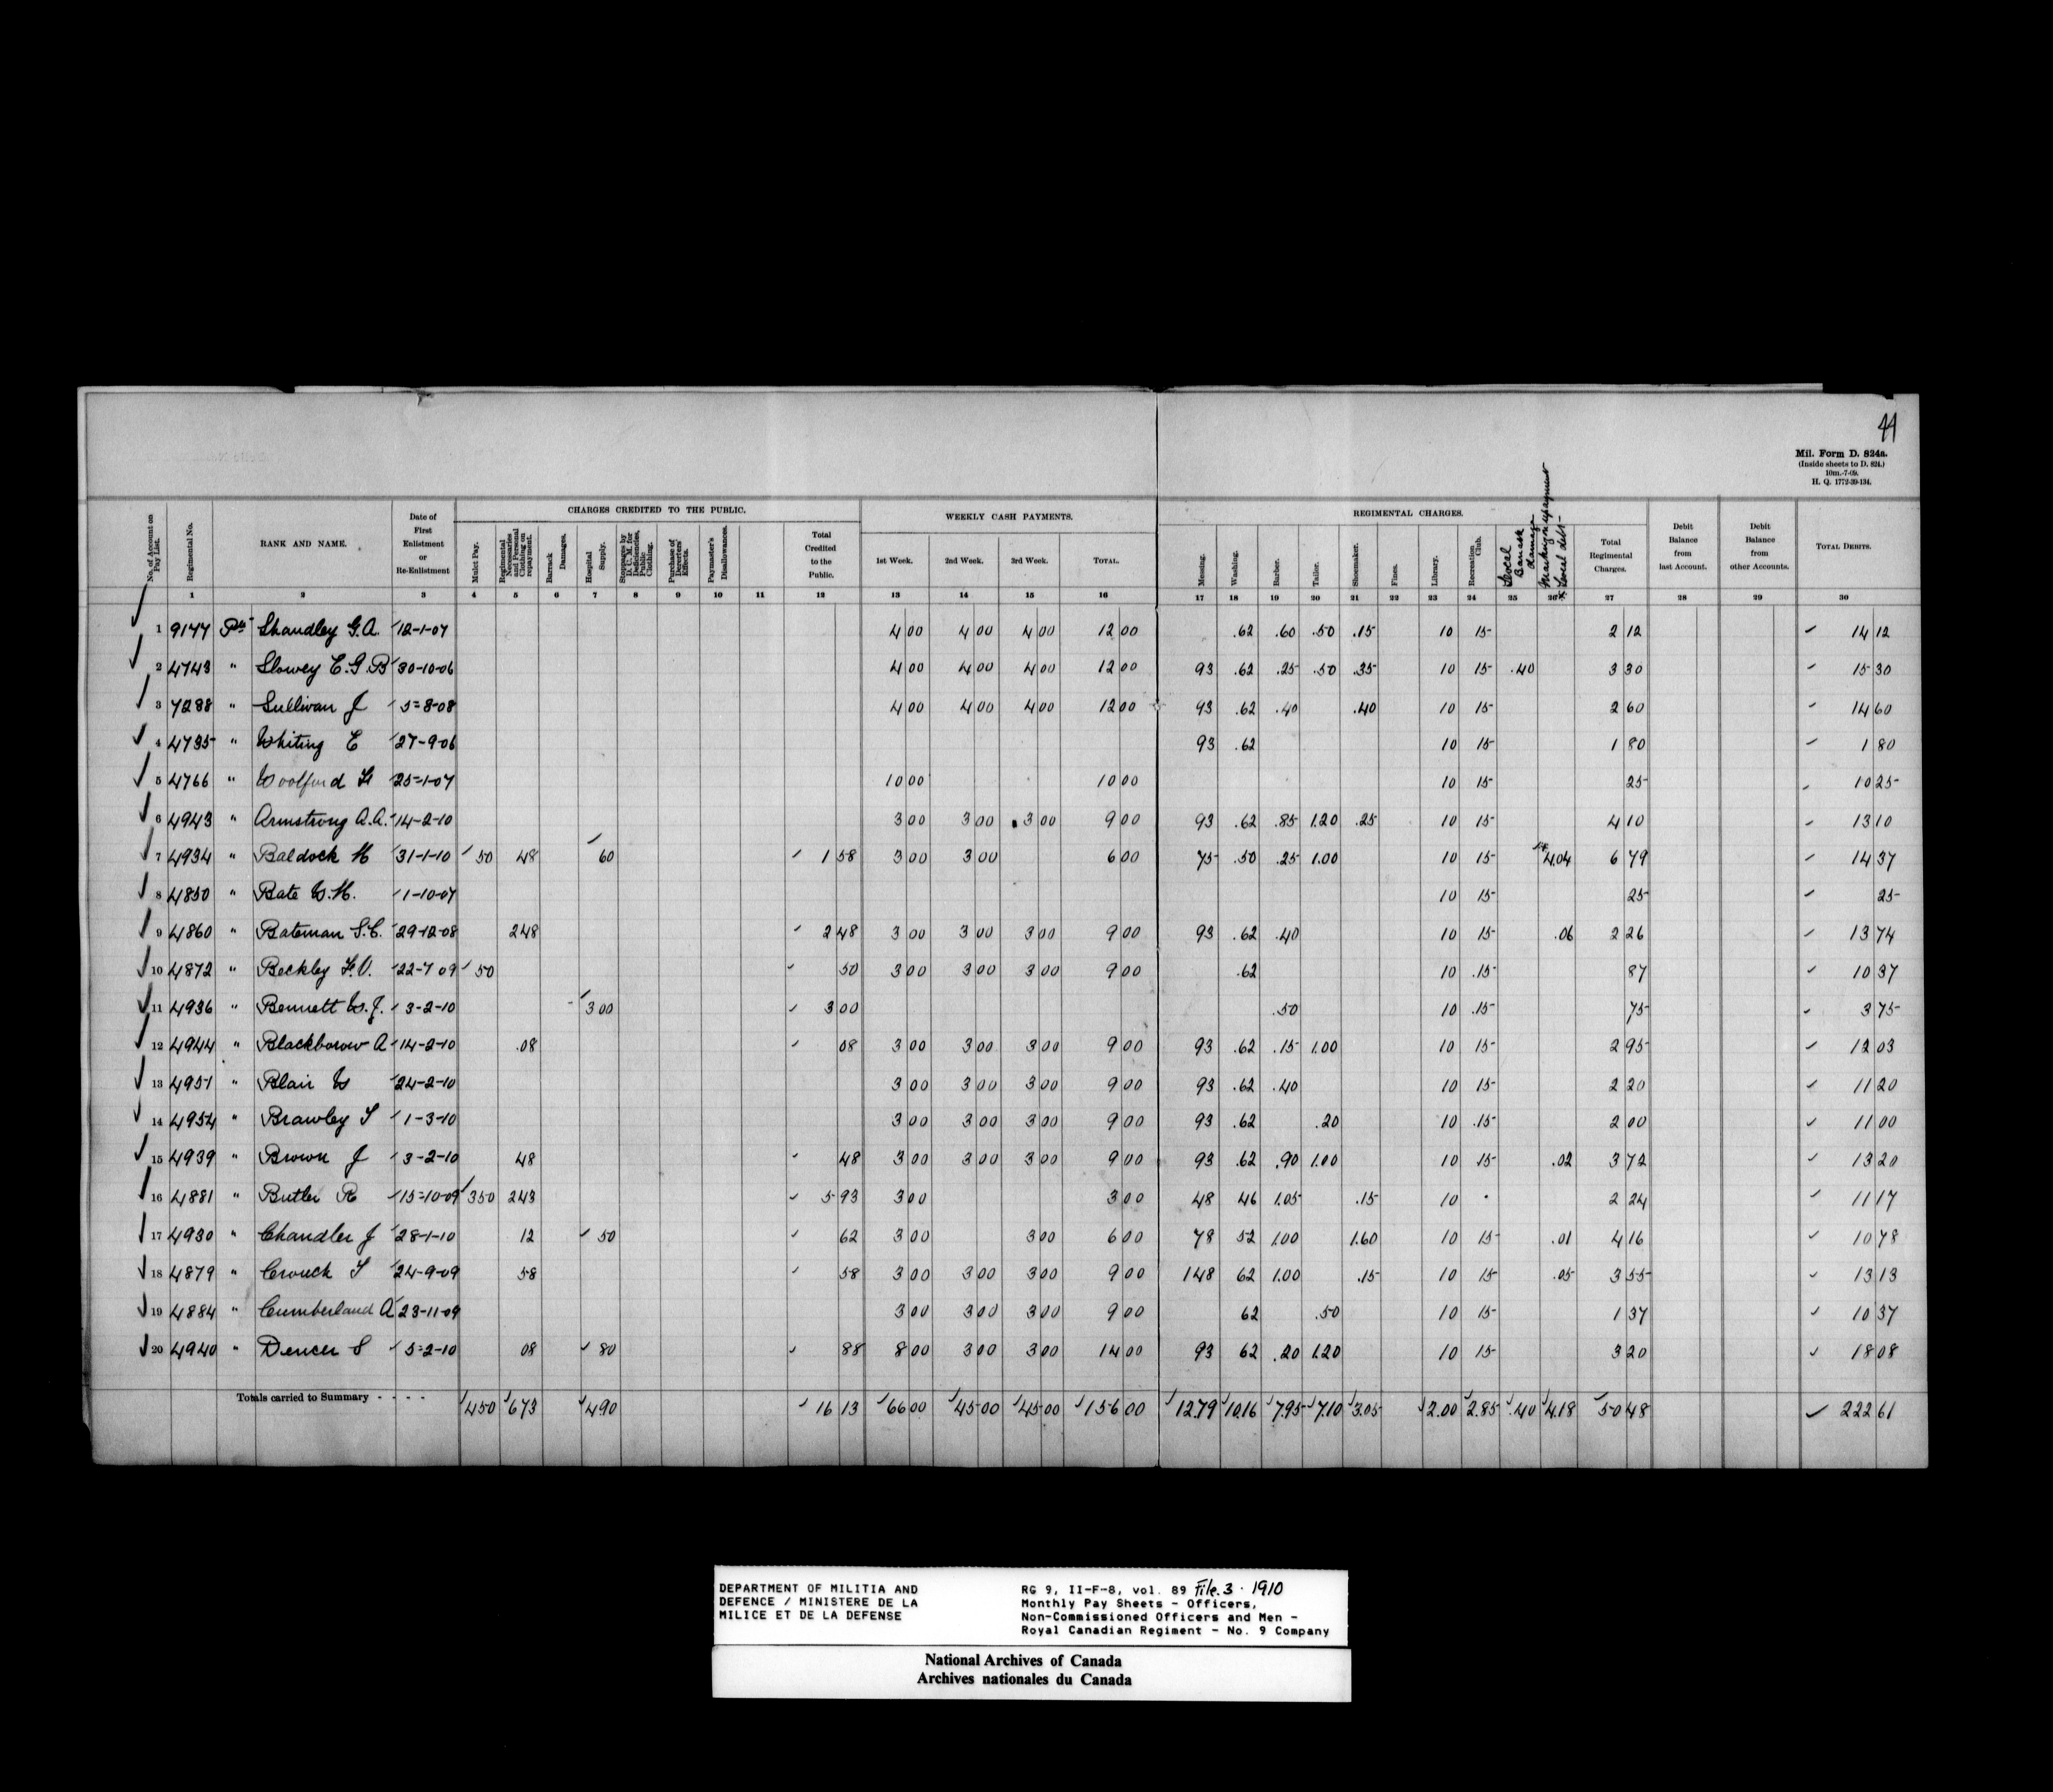 44
Mil. Form D. 824a.
(Inside sheets to D. 824.)
10m.-7-09.
H. Q. 1772-39-134.
No. of Account on Pay List.
Regimental No.
RANK AND NAME.
Date of First Enlistment or Re-Enlistment
CHARGES CREDITED TO THE PUBLIC.
Mulct Pay.
Regimental Necessaries and Personal Clothing on repayment.
Barrack Damages.
Hospital Supply.
Stoppages by D. C. M. for Deficiencies, Public Clothing.
Purchase of Deserters' Effects.
Paymaster's Disallowances.
Total Credited to the Public.
WEEKLY CASH PAYMENTS.
1st Week. 2nd Week. 3rd Week. TOTAL.
REGIMENTAL CHARGES.
Messing. Washing. Barber. Tailor. Shoemaker. Fines. Library. Recreation Club.
Local Barrack damage
Marking on repayment
* Local debt -
Total Regimental Charges.
Debit Balance from last Account.
Debit Balance from other Accounts.
TOTAL DEBITS.
1 2 3 4 5 6 7 8 9 10 11 12 13 14 15 16 17 18 19 20 21 22 23 24 25 26 27 28 29 30
1 9177 Pte Shandley G.A. 12-1-07 4 00 4 00 4 00 12 00 .62 .60 .50 .15 10 15 2 12 14 12
2 4743 " Slowey E.G.B 30-10-06 4 00 4 00 4 00 12 00 93 .62 .25 .50 .35 10 15 .40 3 30 15 30
3 7288 " Sullivan J 5-8-08 4 00 4 00 4 00 12 00 93 .62 .40 .40 10 15 2 60 14 60
4 4735 " Whiting E 27-9-06 93 .62 10 15 1 80 1 80
5 4766 " Woolford H 25-1-07 10 00 10 00 10 15 25 10 25
6 4943 " Armstrong A.A. 14-2-10 3 00 3 00 3 00 9 00 93 .62 .85 1.20 .25 10 15 4 10 13 10
7 4934 " Baldock H 31-1-10 50 48 60 1 58 3 00 3 00 6 00 75 .50 .25 1.00 10 15 * 4.04 6 79 14 37
8 4850 " Bate W.H. 1-10-07 10 15 25 25
9 4860 " Bateman S.C. 29-12-08 2 48 2 48 3 00 3 00 3 00 9 00 93 .62 .40 10 15 .06 2 26 13 74
10 4872 " Beckley F.V. 22-7 09 50 50 3 00 3 00 3 00 9 00 .62 10 .15 87 10 37
11 4936 " Bennett W.J. 3-2-10 3 00 3 00 .50 10 .15 75 3 75
12 4944 " Blackborow A 14-2-10 .08 08 3 00 3 00 3 00 9 00 93 .62 .15 1.00 10 15 2 95 12 03
13 4951 " Blair W 24-2-10 3 00 3 00 3 00 9 00 93 .62 .40 10 15 2 20 11 20
14 4954 " Brawley T 1-3-10 3 00 3 00 3 00 9 00 93 .62 .20 10 .15 2 00 11 00
15 4939 " Brown J 3-2-10 48 48 3 00 3 00 3 00 9 00 93 .62 .90 1.00 10 .15 .02 3 72 13 20
16 4881 " Butler R 15-10-09 3 50 2 43 5 93 3 00 3 00 48 46 1.05 .15 10 2 24 11 17
17 4930 " Chandler J 28-1-10 12 50 62 3 00 3 00 6 00 78 52 1.00 1.60 10 15 .01 4 16 10 78
18 4879 " Crouck T 24-9-09 58 58 3 00 3 00 3 00 9 00 1 48 62 1.00 .15 10 15 .05 3 55 13 13
19 4884 " Cumberland A 23-11-09 3 00 3 00 3 00 9 00 62 .50 10 15 1 37 10 37
20 4940 " Dencer S 5-2-10 08 80 88 8 00 3 00 3 00 14 00 93 62 .20 1.20 10 15 3 20 18 08
Totals carried to Summary - - - - 4 50 6 73 4 90 16 13 66 00 45 00 45 00 156 00 12.79 10.16 7.95 7.10 3.05 2.00 2.85 .40 4.18 50 48 222 61
DEPARTMENT OF MILITIA AND
DEFENCE / MINISTERE DE LA
MILICE ET DE LA DEFENSE
RG 9, II-F-8, vol. 89 File. 3 · 1910
Monthly Pay Sheets - Officers,
Non-Commissioned Officers and Men -
Royal Canadian Regiment - No. 9 Company
National Archives of Canada
Archives nationales du Canada